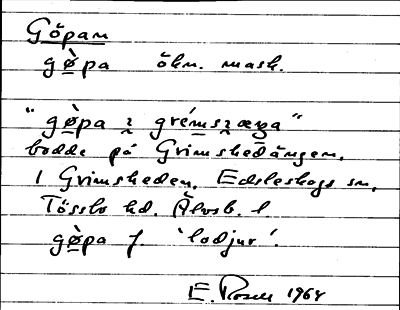 Göpan
gø̀pa ökn. mask.
"gø̀pa ɿ grémsɿæŋa"
bodde på Grimshedängen,
1 Grimsheden, Edsleskogs sn,
Tössbo hd. Älvsb. l
gø̀pa f. 'lodjur'.
E. Rosell 1964